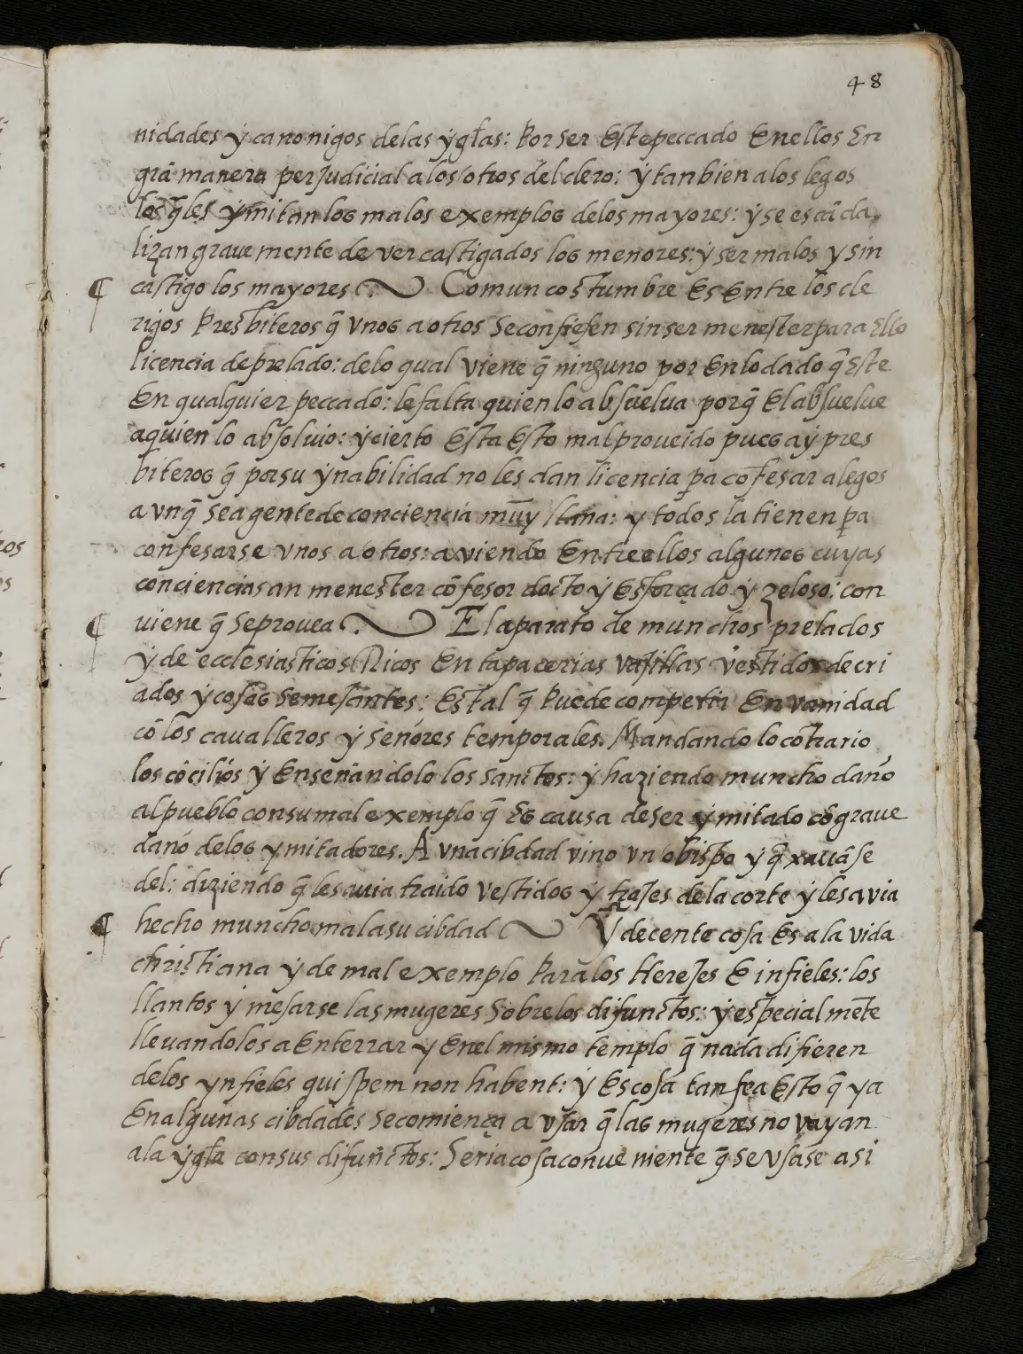 48
nidades ý canonigos delas ýgłas: Por ser Este peccado En ellos En
grā manera perJudicial a los otros del clero: ý tanbien alos legos
los q̄les ýmitan los malos exemplos delos mayores: ý se escāda,
lizan graue mente de ver castigados los menores: ý ser malos y sin
¶ castigo los mayores Comun costumbre Es Entre los cle
rigos Presbiteros q̄ vnos a otros se confiesen sin ser menester para Ello
licencia de prelado: de lo qual viene q̄ ninguno por Enlodado q̄ Este
En qualquier peccado: le falta quien lo absuelua porq̄ El absuelue
a quien lo absoluio: ý cierto Esta Esto mal proueido pues aý pres
biteros q̄ por su ýnabilidad no les dan licencia pa cōfesar a legos
a vnq̄ sea gente de conciencia muy llana: y todos la tienen pa
confesarse vnos a otros: a viendo Entre ellos algunos cuyas
conciencias an menester cōfesor docto ý Esforçado ý zeloso: con
¶ uiene q̄ se prouea El aparato de munchos prelados
ý de ecclesiasticos Ricos En tapacerias vasillas vestidos de cri
ados ý cosas semeJantes: Es tal q̄ Puede competir En vanidad
cō los caualleros ý señores temporales. Mandando lo cōtrario
los cōcilios ý Enseñandolo los santos: ý haziendo muncho daño
al pueblo con su mal exemplo q̄ Es causa de ser ýmitado cō graue
daño delos ymitadores. A vna cibdad vino vn obispo y q̄xauāse
del: diziendo q̄ les auia traido vestidos ý traJes de la corte ý les avia
¶ hecho muncho mal a su cibdad Yndecente cosa Es a la vida
christiana ý de mal exemplo Para los HereJes E infieles: los
llantos ý mesarse las mugeres sobre los difunctos: ý especial mēte
lleuandolos a Enterrar y En el mismo templo q̄ nada difieren
delos ynfieles qui spem non habent: ý Es cosa tan fea Esto q̄ ya
En algunas cibdades se comiença a vsar q̄ las mugeres no vayan
a la ýgła con sus difunctos: Seria cosa conue niente q̄ se vsase asi